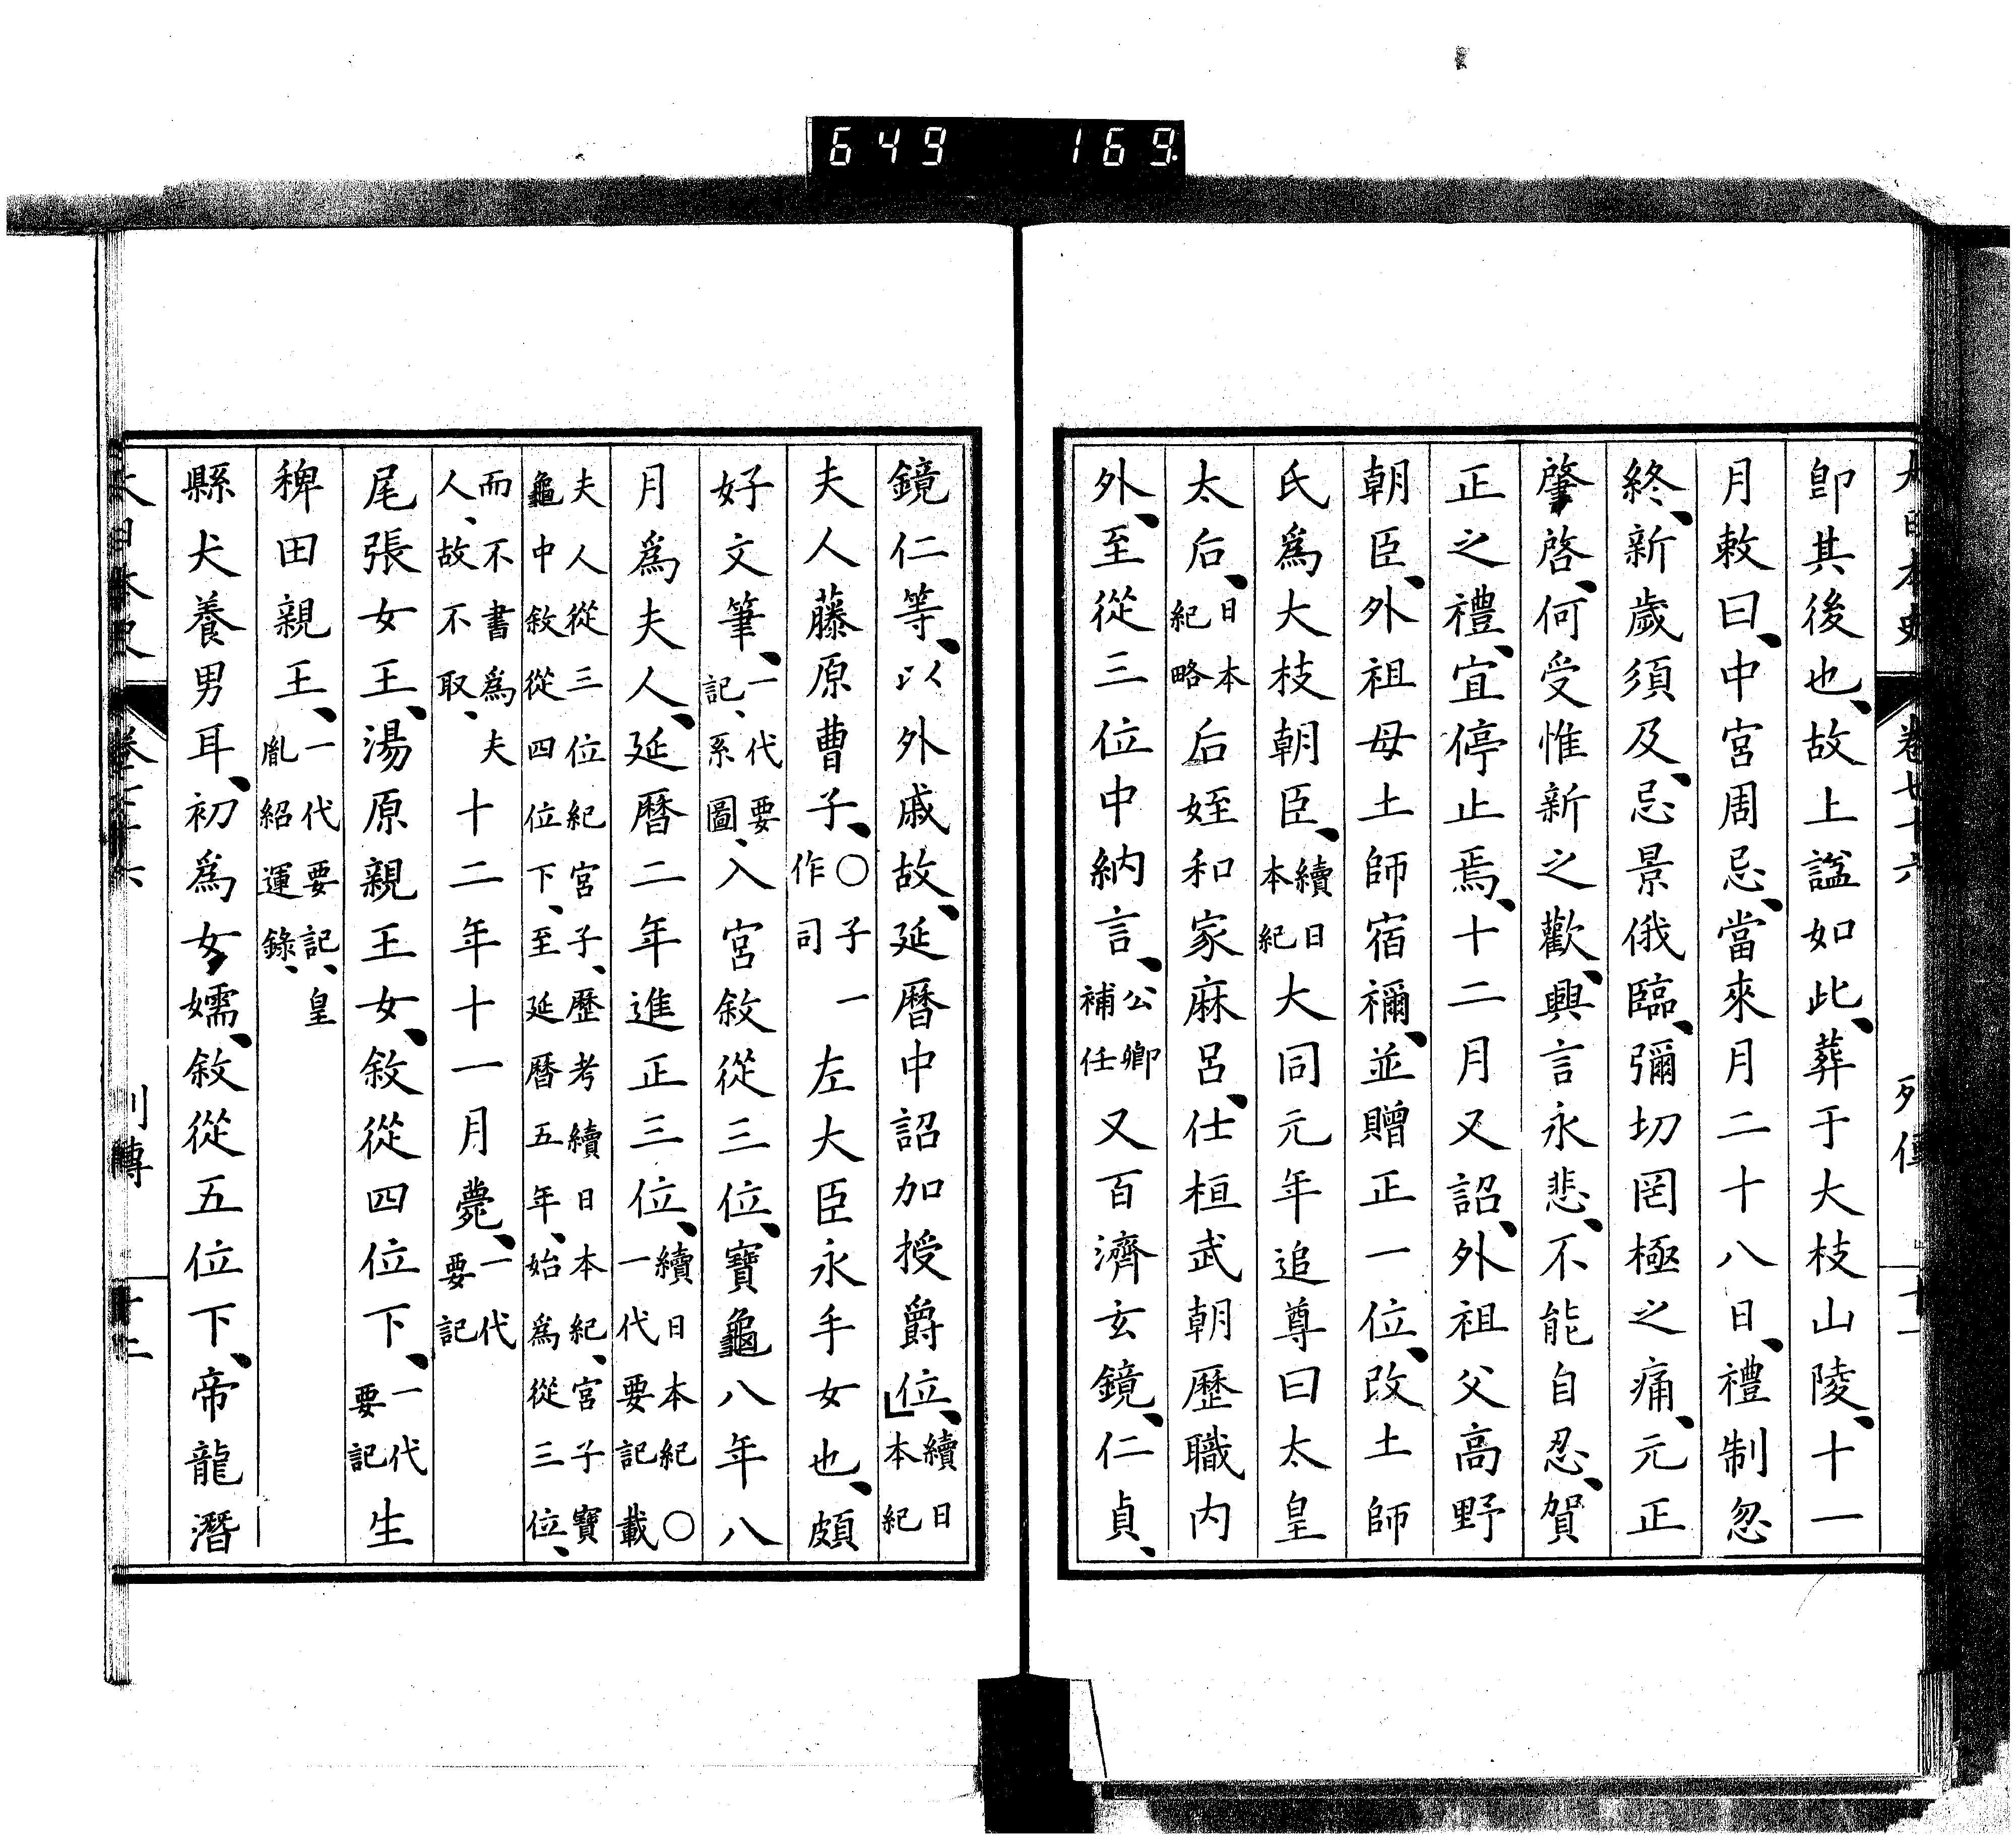 649 169
大日本史 卷七十六 列傳 十一
卽其後也、故上謚如此、葬于大枝山陵、十一
月敕曰、中宮周忌、當來月二十八日、禮制忽
終、新歲須及、忌景俄臨、彌切罔極之痛、元正
肇啓、何受惟新之歡、興言永悲、不能自忍、賀
正之禮、宜停止焉、十二月又詔、外祖父高野
朝臣、外祖母土師宿禰、並贈正一位、改土師
氏爲大枝朝臣、續日本紀大同元年追尊曰太皇
太后、日本紀略后姪和家麻呂、仕桓武朝歷職內
外、至從三位中納言、公卿補任又百濟玄鏡、仁貞、
鏡仁等、以外戚故、延曆中詔加授爵位、續日本紀
夫人藤原曹子、〇子一作司左大臣永手女也、頗
好文筆、一代要記、系圖、入宮敘從三位、寶龜八年八
月爲夫人、延曆二年進正三位、續日本紀〇一代要記載
夫人從三位紀宮子、歷考續日本紀、宮子寶龜中敘從四位下、至延曆五年、始爲從三位、
而不書爲夫人、故不取、十二年十一月薨、一代要記
尾張女王、湯原親王女、敘從四位下、一代要記生
稗田親王、一代要記、皇胤紹運錄、
縣犬養男耳、初爲女嬬、敘從五位下、帝龍潛
大日本史 卷七十六 列傳 十二